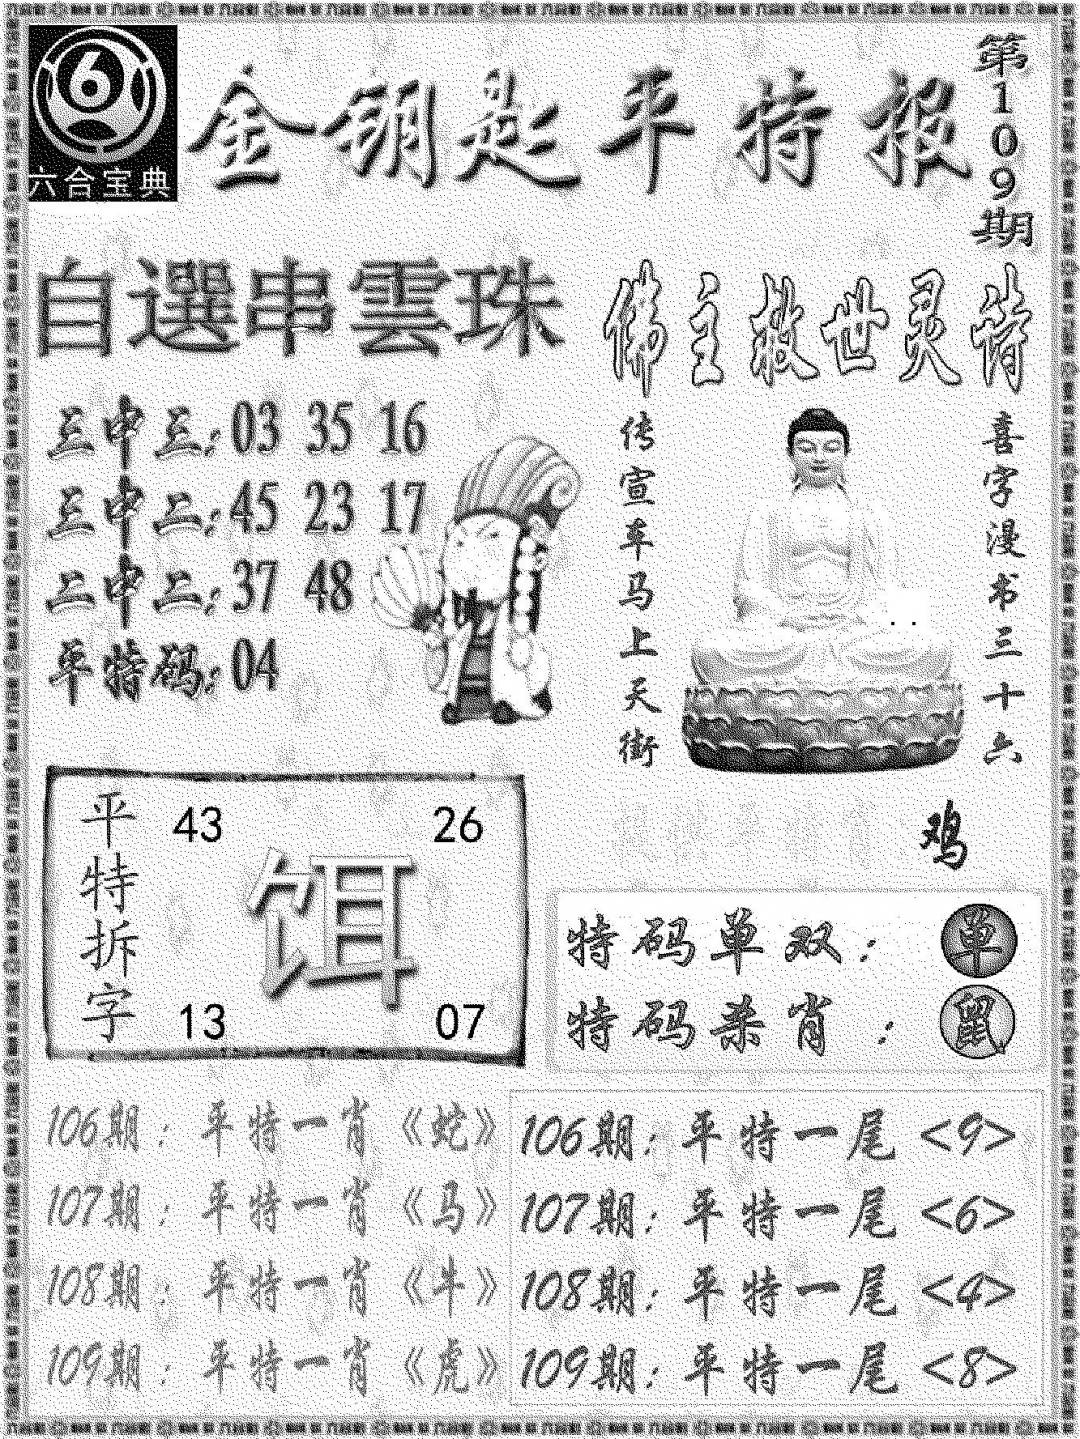 六合宝典
金钥匙平特报
第109期
自選串雲珠
三中三:03 35 16
三中二:45 23 17
二中二:37 48
平特码:04
佛主救世灵诗
传宣车马上天街
喜字漫书三十六
鸡
平特拆字
43 26
饵
13 07
特码单双: 单
特码杀肖: 鼠
106期: 平特一肖《蛇》
107期: 平特一肖《马》
108期: 平特一肖《牛》
109期: 平特一肖《虎》
106期: 平特一尾<9>
107期: 平特一尾<6>
108期: 平特一尾<4>
109期: 平特一尾<8>